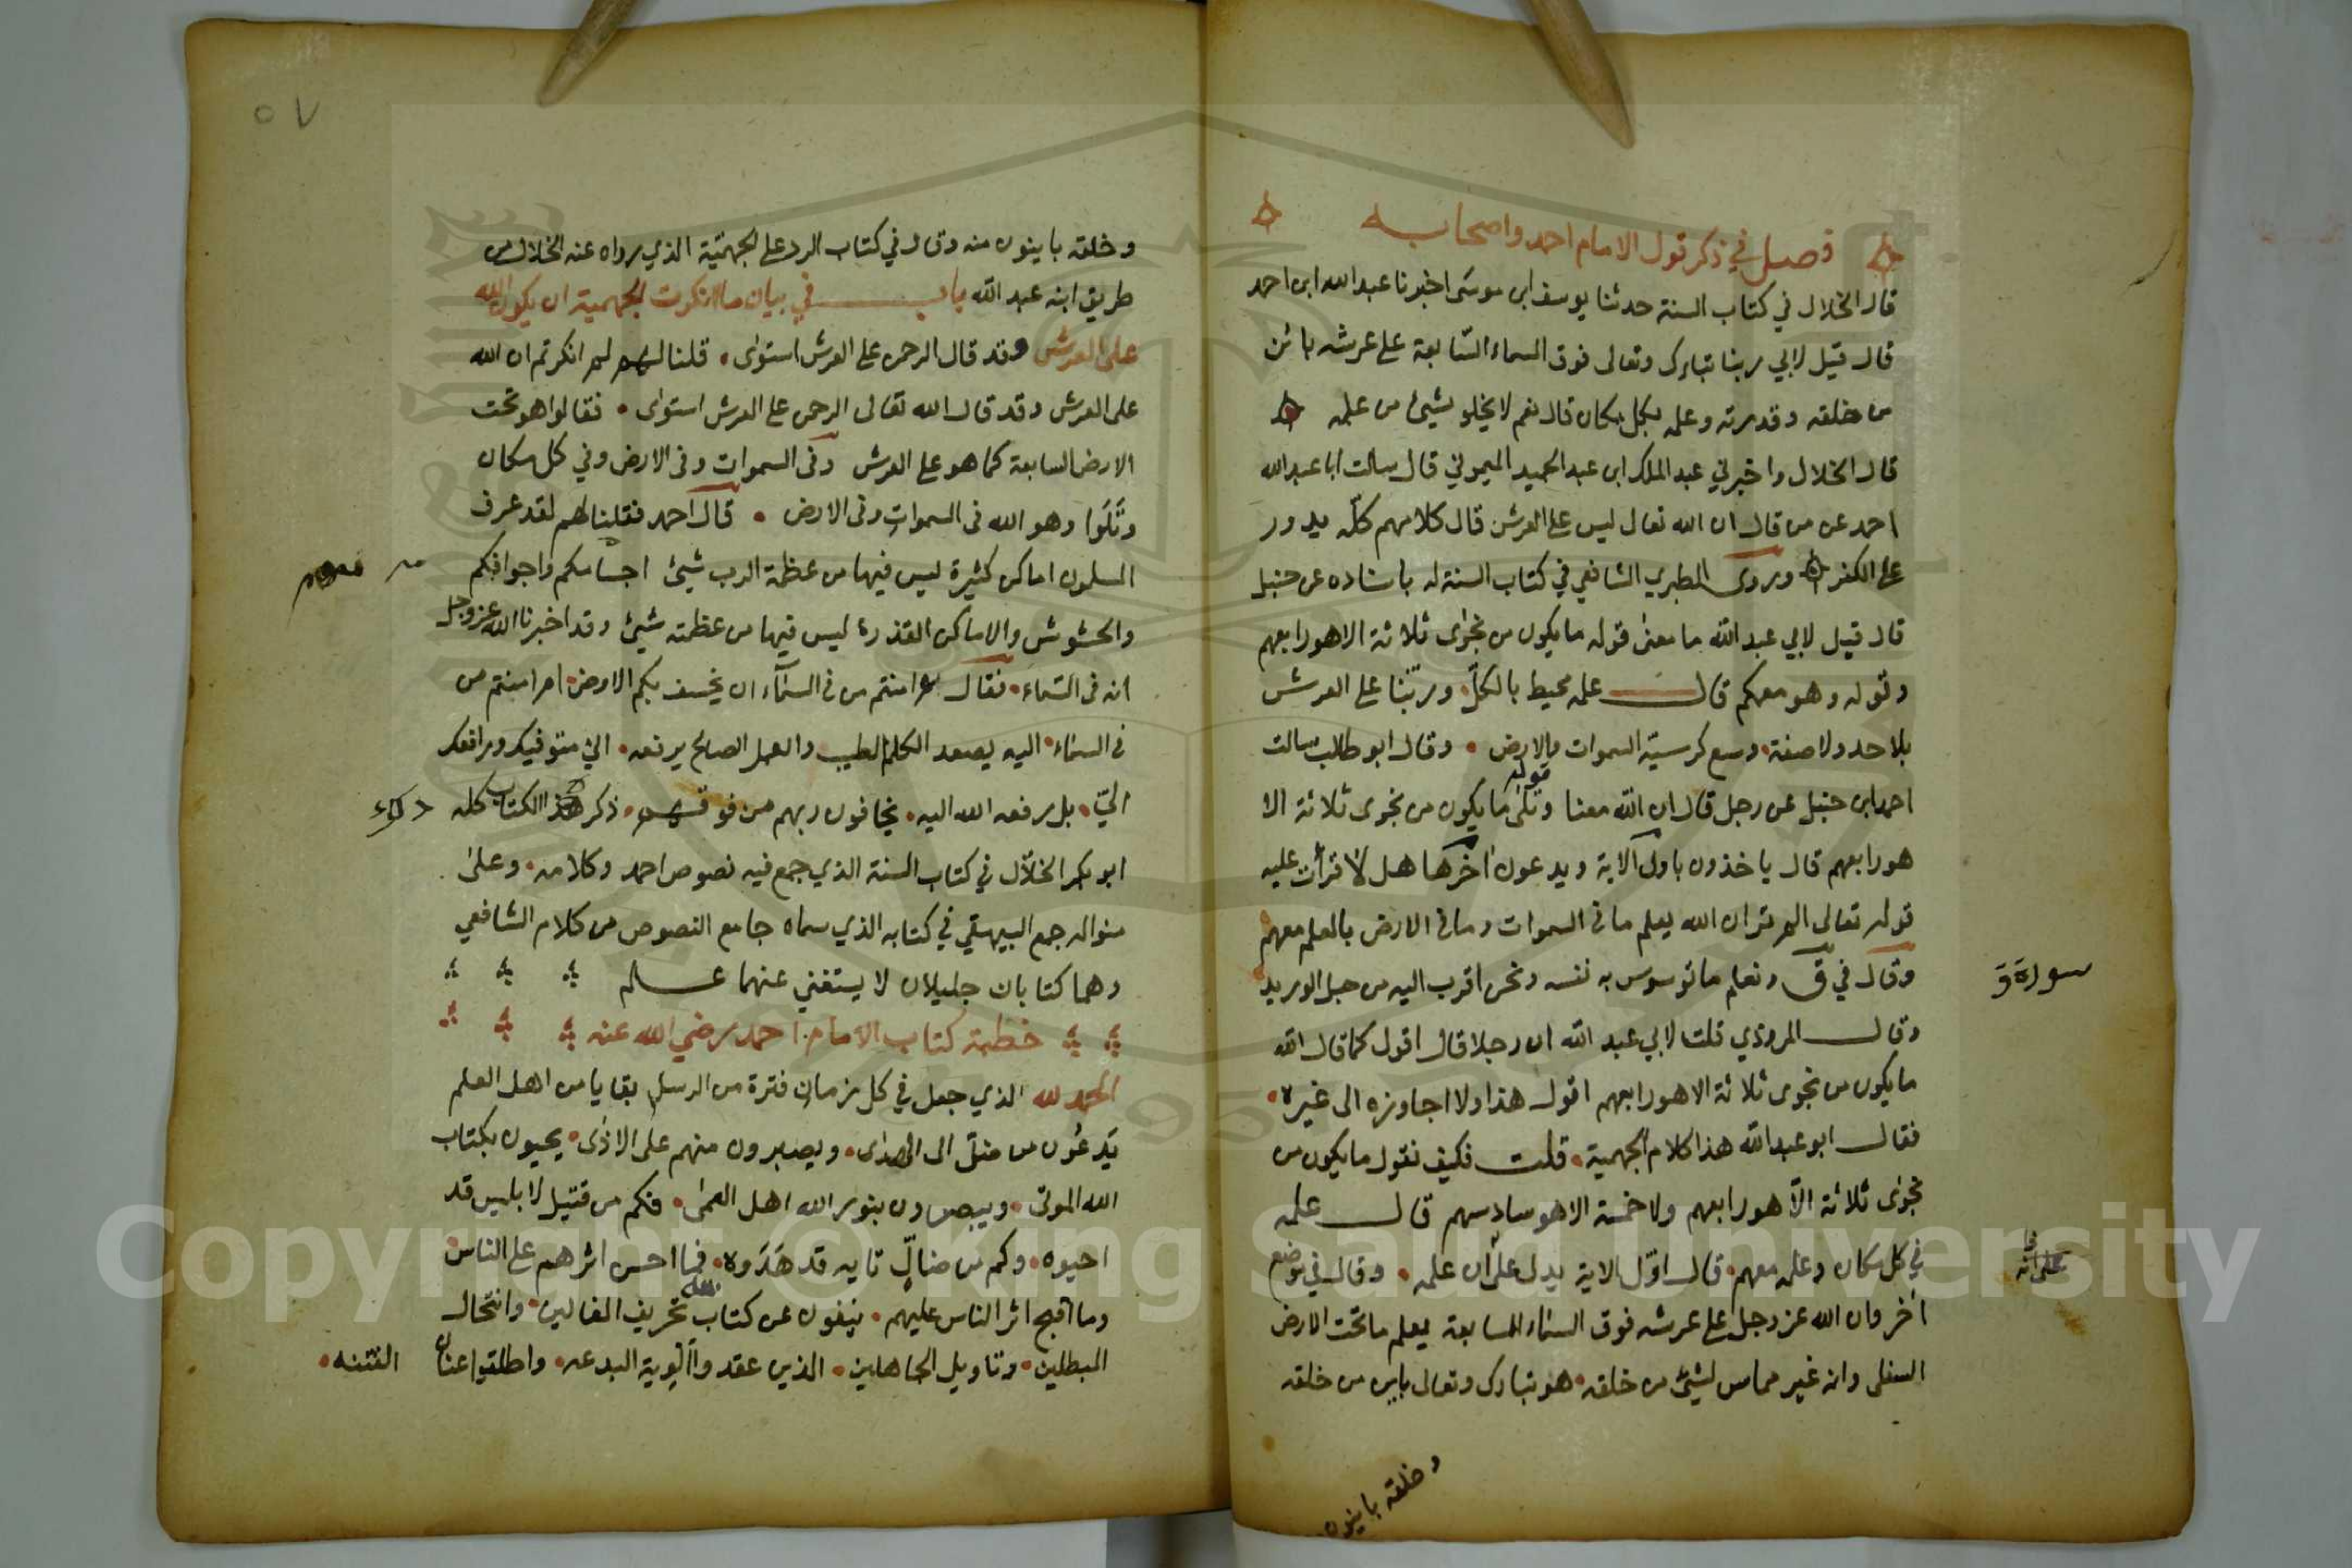 فصل في ذكر قول الامام احمد واصحابه
قال الخلال في كتاب السنة حدثنا يوسف ابن موسى اخبرنا عبد الله ابن احمد
قال قيل لابي ربنا تبارك وتعالى فوق السماء السابعة على عرشه بائن
من خلقه وقدرته وعلمه بكل مكان قال نعم لا يخلو شيئ من علمه
قال الخلال واخبرني عبد الملك ابن عبد الحميد الميموني قال سالت ابا عبد الله
احمد عن من قال ان الله تعال ليس على العرش قال كلامهم كله يدور
على الكفر وروى الطبري الشافعي في كتاب السنة له باسناده عن حنبل
قال قيل لابي عبد الله ما معنى قوله ما يكون من نجوى ثلاثة الا هو رابعهم
وقوله وهو معكم قال علمه محيط بالكل وربنا على العرش
بلا حد ولا صفة وسع كرسيه السموات والارض وقال ابو طالب سالت
احمد ابن حنبل عن رجل قال ان الله معنا وتلى قوله ما يكون من نجوى ثلاثة الا
هو رابعهم قال ياخذون باول الاية ويدعون اخرها هل لا قرات عليه
قوله تعالى الم تر ان الله يعلم ما في السموات وما في الارض بالعلم معهم
وقال في ق ونعلم ما توسوس به نفسه ونحن اقرب اليه من حبل الوريد
سورة ق
وقال المروذي قلت لابي عبد الله ان رجلا قال اقول كما قال الله
ما يكون من نجوى ثلاثة الا هو رابعهم اقول هذا ولا اجاوزه الى غيره
فقال ابو عبد الله هذا كلام الجهمية قلت فكيف نقول ما يكون من
نجوى ثلاثة الا هو رابعهم ولا خمسة الا هو سادسهم قال علمه
في كل مكان وعلمه معهم قال اول الاية يدل على ان علمه وقال في موضع
على انه
اخر وان الله عز وجل على عرشه فوق السماء السابعة يعلم ما تحت الارض
السفلى وانه غير مماس لشيئ من خلقه هو تبارك وتعالى باين من خلقه
وخلقه باينون
٥٧
وخلقه باينون منه وقال في كتاب الرد على الجهمية الذي رواه عنه الخلال من
طريق ابنه عبد الله باب في بيان ما انكرت الجهمية ان يكون الله
على العرش وقد قال الرحمن على العرش استوى قلنا لهم لم انكرتم ان الله
على العرش وقد قال الله تعالى الرحمن على العرش استوى فقالوا هو تحت
الارض السابعة كما هو على العرش وفى السموات وفى الارض وفي كل مكان
وتلوا وهو الله فى السموات وفى الارض قال احمد فقلنا لهم لقد عرف
المسلمون اماكن كثيرة ليس فيها من عظمة الرب شيئ اجسامكم واجوافكم
والحشوش والاماكن القذرة ليس فيها من عظمته شيئ وقد اخبرنا الله عز وجل
انه فى السماء فقال ءامنتم من في السماء ان يخسف بكم الارض ام امنتم من
في السماء اليه يصعد الكلم الطيب والعمل الصالح يرفعه اني متوفيك ورافعك
الي بل رفعه الله اليه يخافون ربهم من فوقهم ذكر هذا الكتاب كله
ابو بكر الخلال في كتاب السنة الذي جمع فيه نصوص احمد وكلامه وعلى
منواله جمع البيهقي في كتابه الذي سماه جامع النصوص من كلام الشافعي
وهما كتابان جليلان لا يستغني عنهما عالم
خطبة كتاب الامام احمد رضي الله عنه
الحمد لله الذي جعل في كل زمان فترة من الرسل بقايا من اهل العلم
يدعون من ضل الى الهدى ويصبرون منهم على الاذى يحيون بكتاب
الله الموتى ويبصرون بنور الله اهل العمى فكم من قتيل لابليس قد
احيوه وكم من ضال تايه قد هدوه فما احسن اثرهم على الناس
وما اقبح اثر الناس عليهم ينفون عن كتاب الله تحريف الغالين وانتحال
المبطلين وتاويل الجاهلين الذين عقدوا الوية البدعه واطلقوا عنان الفتنه